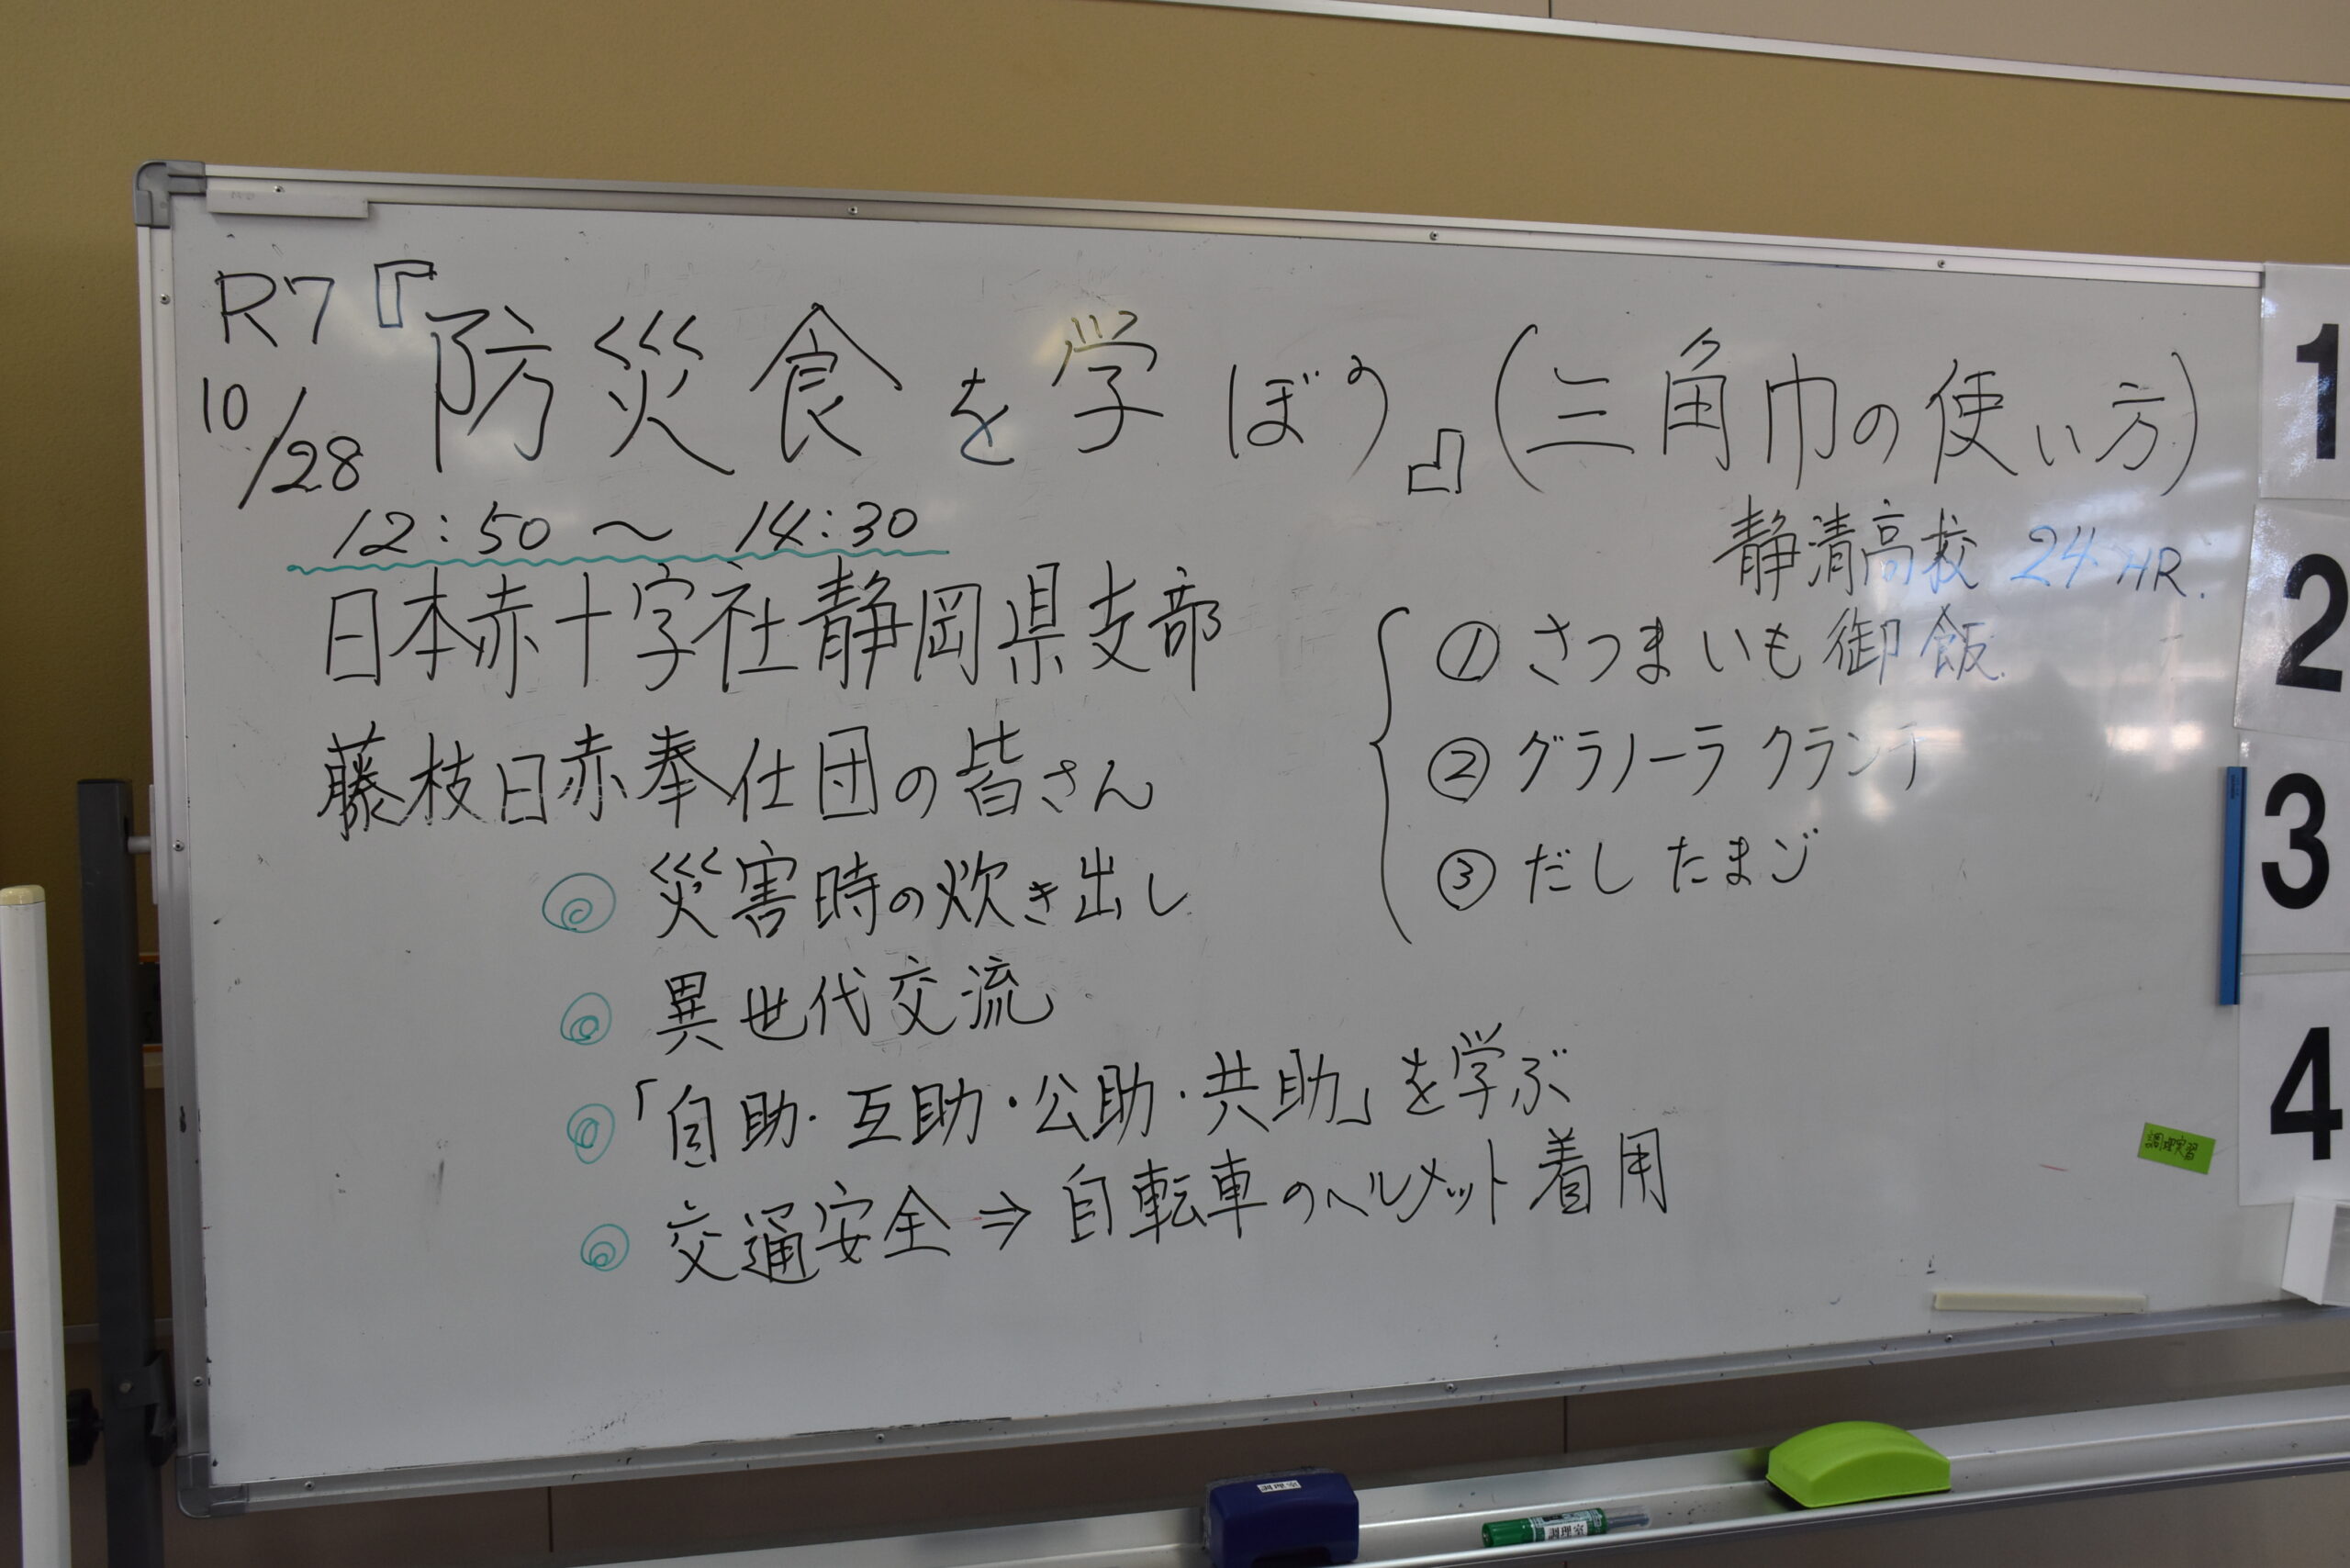 R7『防災食を学ぼう』(三角巾の使い方)
10/28
12:50 ～ 14:30
静清高校 24HR.
日本赤十字社静岡県支部
藤枝日赤奉仕団の皆さん
① さつまいも御飯
② グラノーラ クランチ
③ だし たまご
◎ 災害時の炊き出し
◎ 異世代交流
◎「自助・互助・公助・共助」を学ぶ
◎ 交通安全 ⇒ 自転車のヘルメット着用
1
2
3
4
調理実習
調理室
調理室